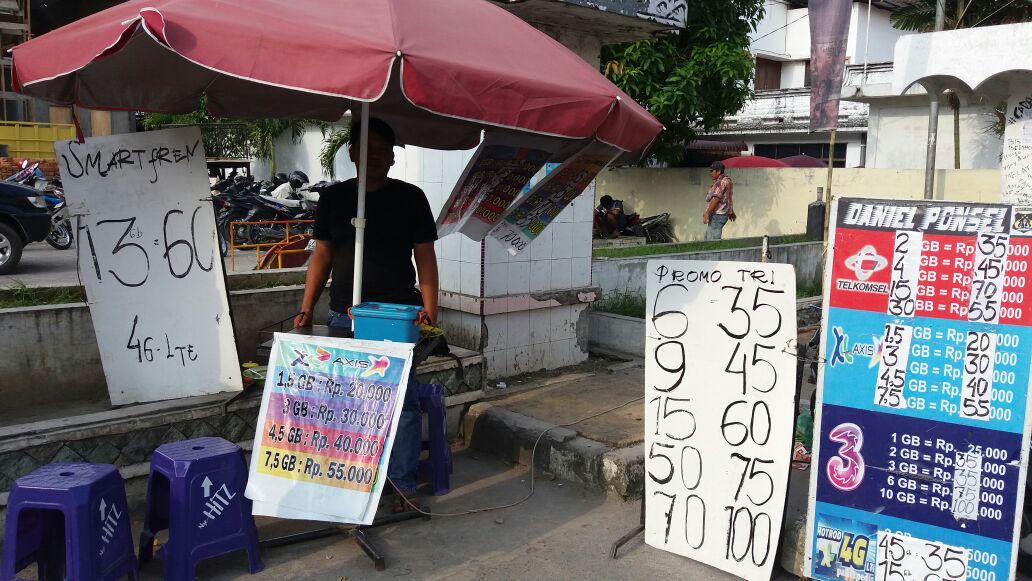 SMARTFREN
13GB:60
4G-LTE
XL AXIS
1,5 GB : Rp. 20.000
3 GB : Rp. 30.000
4,5 GB : Rp. 40.000
7,5 GB : Rp. 55.000
HiTZ
HiTZ
PROMO TRI
6 35
9 45
15 60
50 75
70 100
DANIEL PONSEL
TELKOMSEL
2 GB = Rp. 35.000
4 GB = Rp. 45.000
15 GB = Rp. 70.000
30 GB = Rp. 55.000
XL AXIS
1,5 GB = Rp. 20.000
3 GB = Rp. 30.000
4,5 GB = Rp. 40.000
7,5 GB = Rp. 55.000
3
1 GB = Rp. 25.000
2 GB = Rp.
3 GB = Rp. 35.000
6 GB = Rp. 75.000
10 GB = Rp. 100.000
HOTROD
XL 4G
45 35